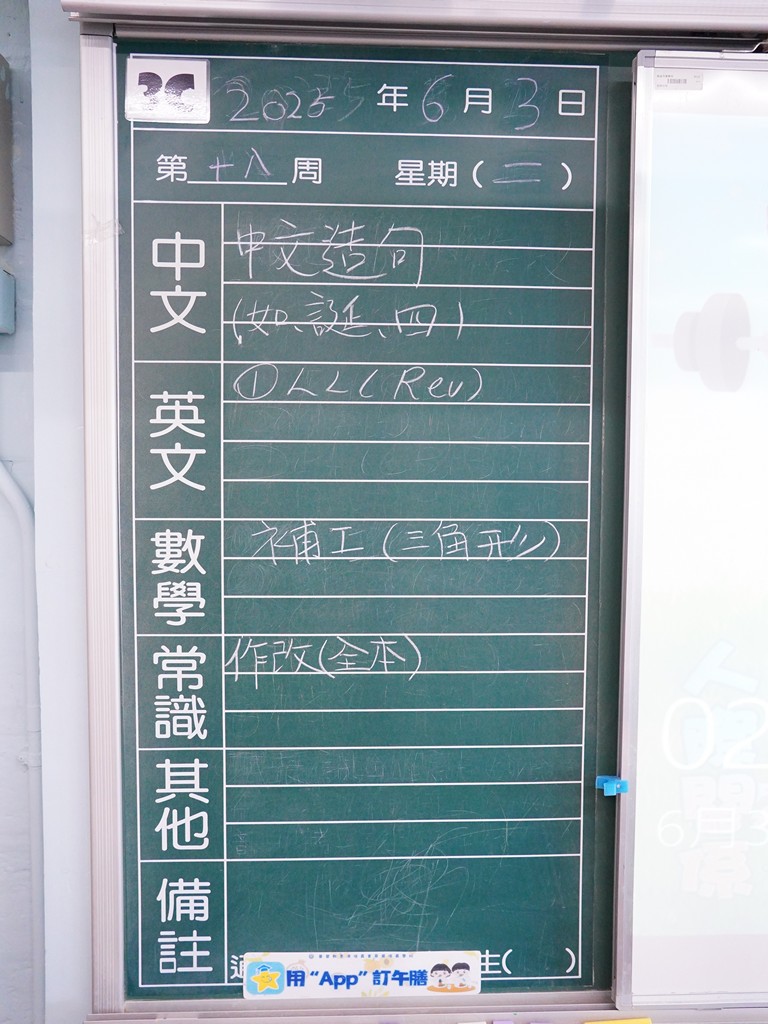 3C 2025年6月3日
第十八周 星期(二)
中文
中文造句
(如、誕、四)
英文
①LL(Rev)
數學
補工(三角形)
常識
作改(全本)
其他
備註
生( )
用“App”訂午膳
02
6月3